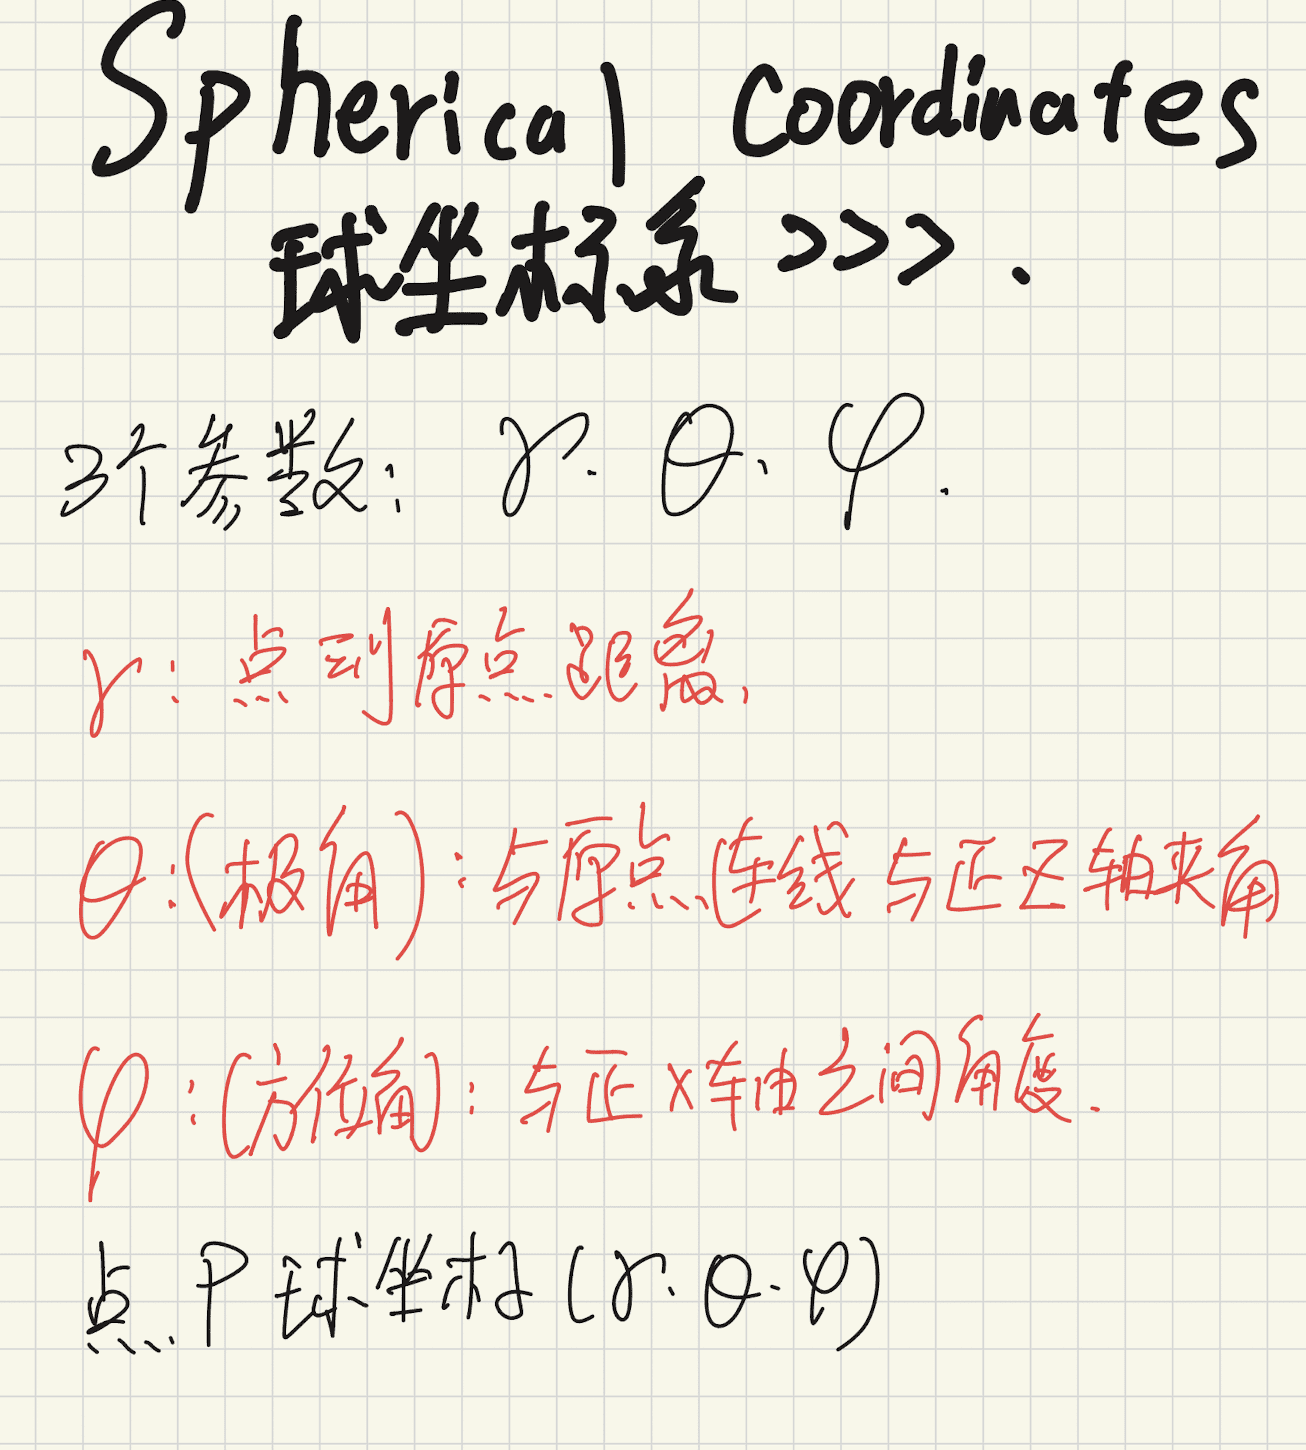 Spherical Coordinates
球坐标系 >>>.
3个参数: r. θ. φ.
r: 点到原点距离.
θ:(极角): 与原点连线与正Z轴夹角
φ:(方位角): 与正X轴之间角度.
点P球坐标(r.θ.φ)